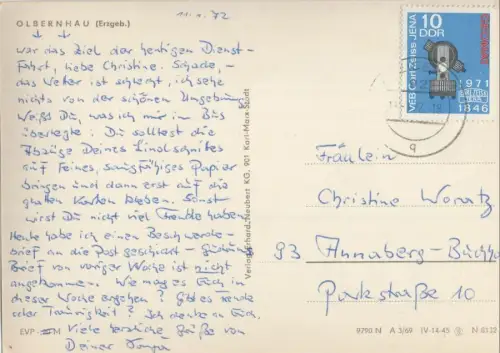 11.1.72
OLBERNHAU (Erzgeb.)
war das Ziel der heutigen Dienst-
fahrt, liebe Christine. Schade,-
das Wetter ist schlecht, ich sehe
nichts von der schönen Umgebung.
Weißt Du, was ich mir im Bus
überlegte: Du solltest die
Abzüge Deines Linolschnittes
auf feines, saugfähiges Papier
bringen und dann erst auf die
glatten Karten kleben. Sonst
wirst Du nicht viel Freude haben.
Heute habe ich einen Beschwerde-
brief an die Post geschickt -
Brief von voriger Woche ist nicht
angekommen. Wie mag es Euch in
dieser Woche ergehen? Gibt es Freude
oder Traurigkeit? Ich denke an Euch.
Viele herzliche Grüße von
Deiner
EVP M
Verlag Gerhard Neubert KG, 901 Karl-Marx-Stadt
10
DDR
VEB Carl Zeiss JENA
1971
1846
Fräulein
Christine
93 Annaberg-Buchho
Parkstraße 10
9790 N A 3/69 IV-14-45 N 8132